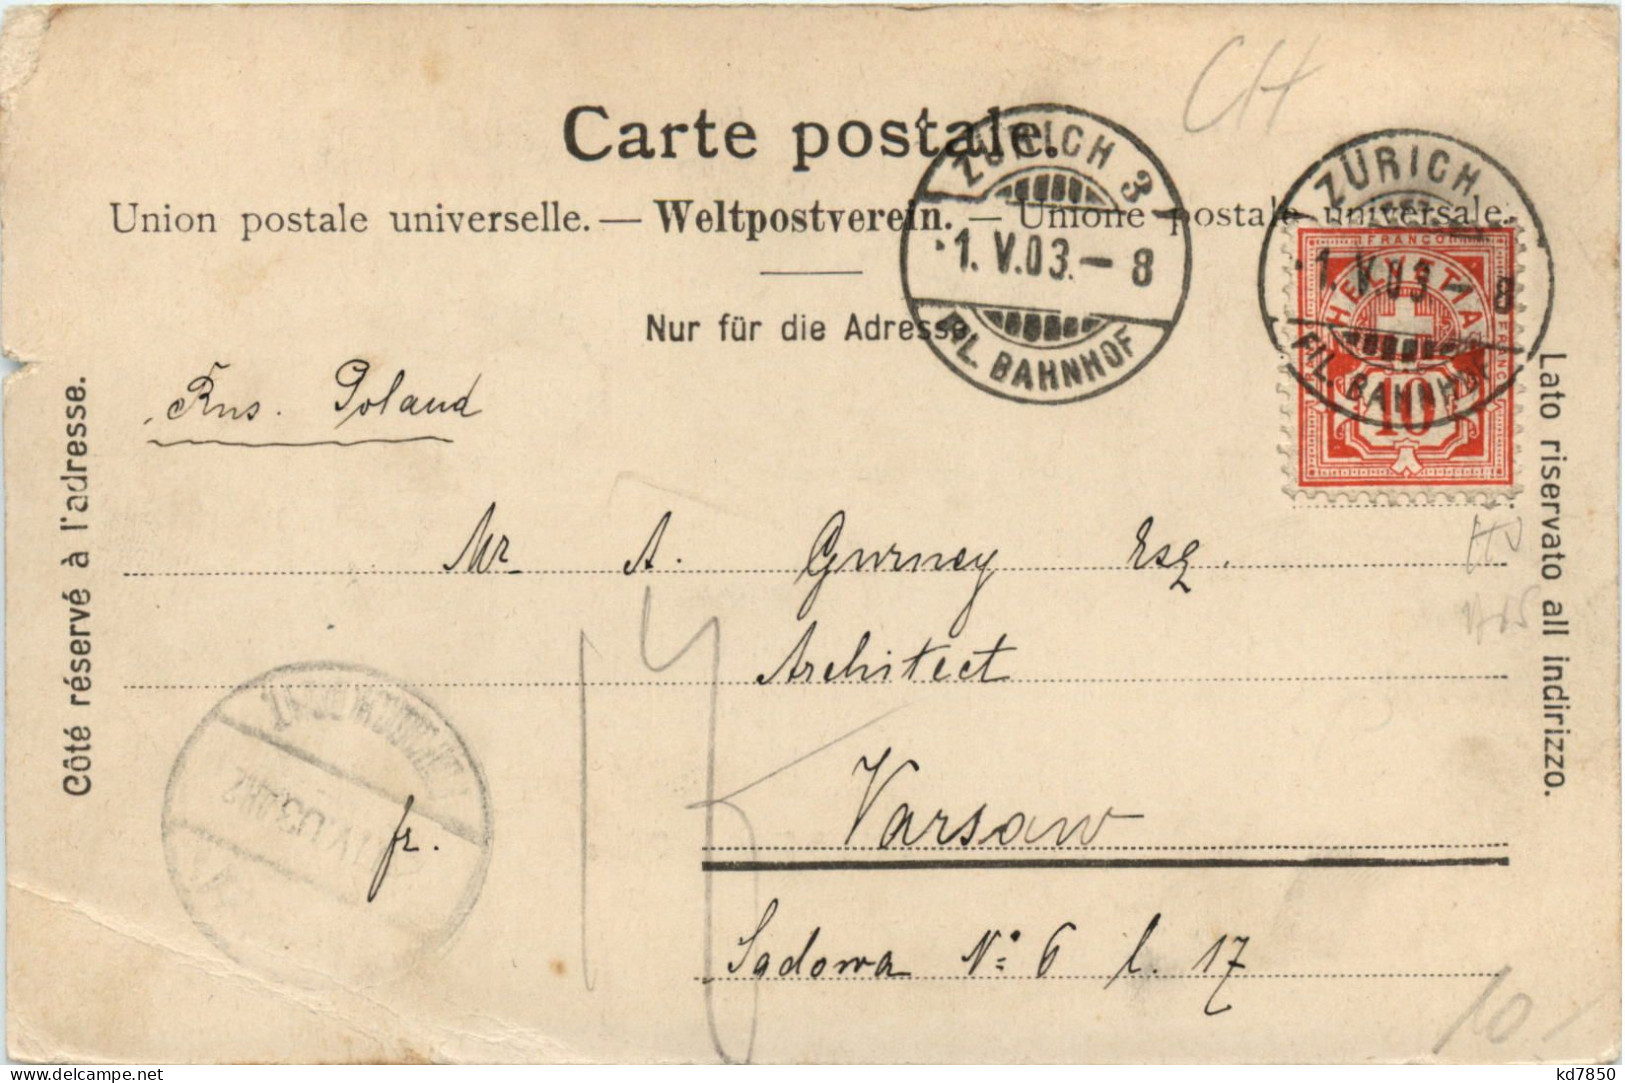 CH
Carte postale.
Union postale universelle. — Weltpostverein. — Unione postale universale.
Nur für die Adresse.
ZÜRICH 3
1. V.03. – 8
FIL. BAHNHOF
ZÜRICH
1. V.03 – 8
FIL. BAHNHOF
FRANCO
HELVETIA
FRANCO
10
Côté réservé à l'adresse.
Lato riservato all indirizzo.
Rus. Poland
Mr A. Gurney Esq.
Architect
fr.
Varsaw
Sadowa No: 6 l. 17
10.-
delcampe.net
kd7850